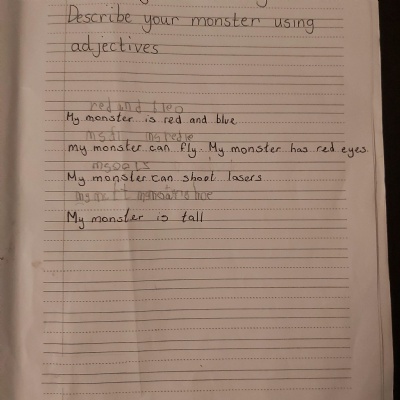 Describe your monster using
adjectives
red and
My monster is red and blue
my monster can fly. My monster has red eyes.
My monster can shoot lasers
My monster is tall